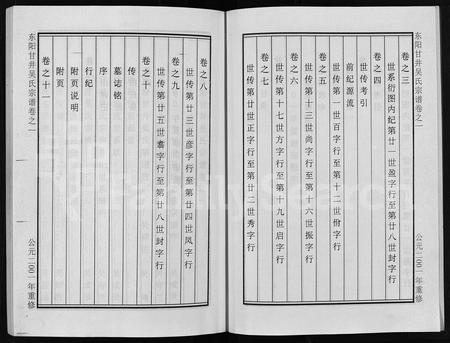 东阳甘井吴氏宗谱卷之一
公元二〇〇一年重修
卷之三
世系衍图内纪第廿一世盈字行至第廿八世封字行
卷之四
世传考引
前纪源流
世传第一世百字行至第十二世份字行
卷之五
世传第十三世尚字行至第十六世振字行
卷之六
世传第十七世方字行至第十九世启字行
卷之七
世传第廿世正字行至第廿二世秀字行
卷之八
世传第廿三世彦字行至第廿四世凤字行
卷之九
世传第廿五世翥字行至第廿八世封字行
卷之十
传
墓志铭
序
行纪
附页说明
附页
卷之十一
东阳甘井吴氏宗谱卷之一
公元二〇〇一年重修